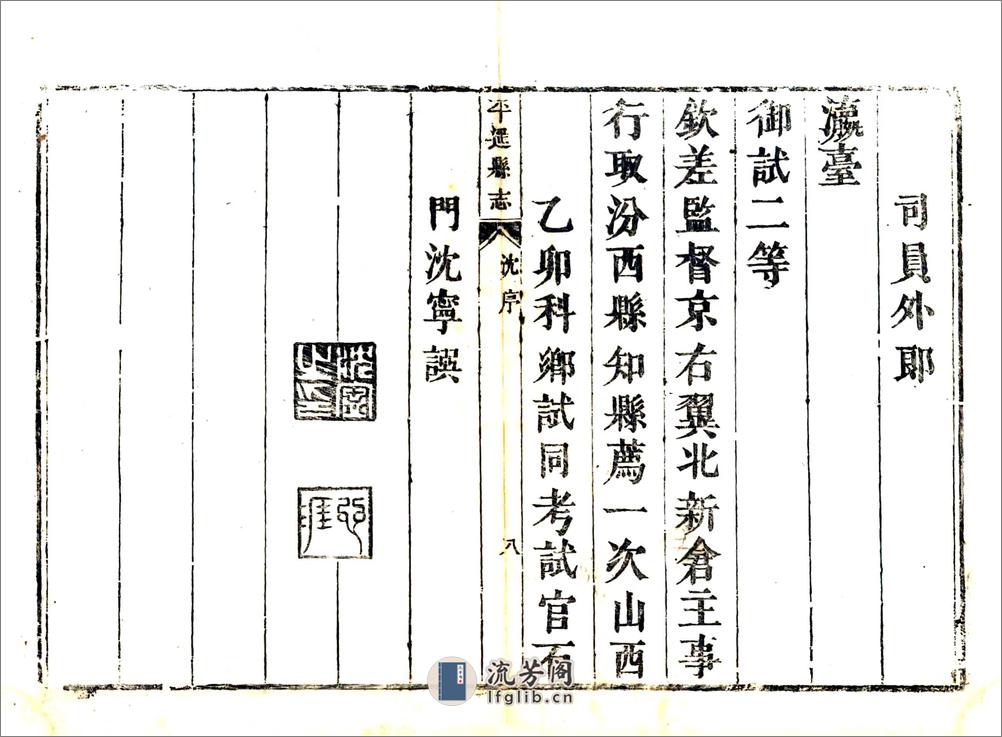 司員外郎
瀛臺
御試二等
欽差監督京右翼北新倉主事
行取汾西縣知縣薦一次山西
乙卯科鄉試同考試官石
平遥縣志 沈序 八
門沈寧譔
流芳阁
lfglib.cn